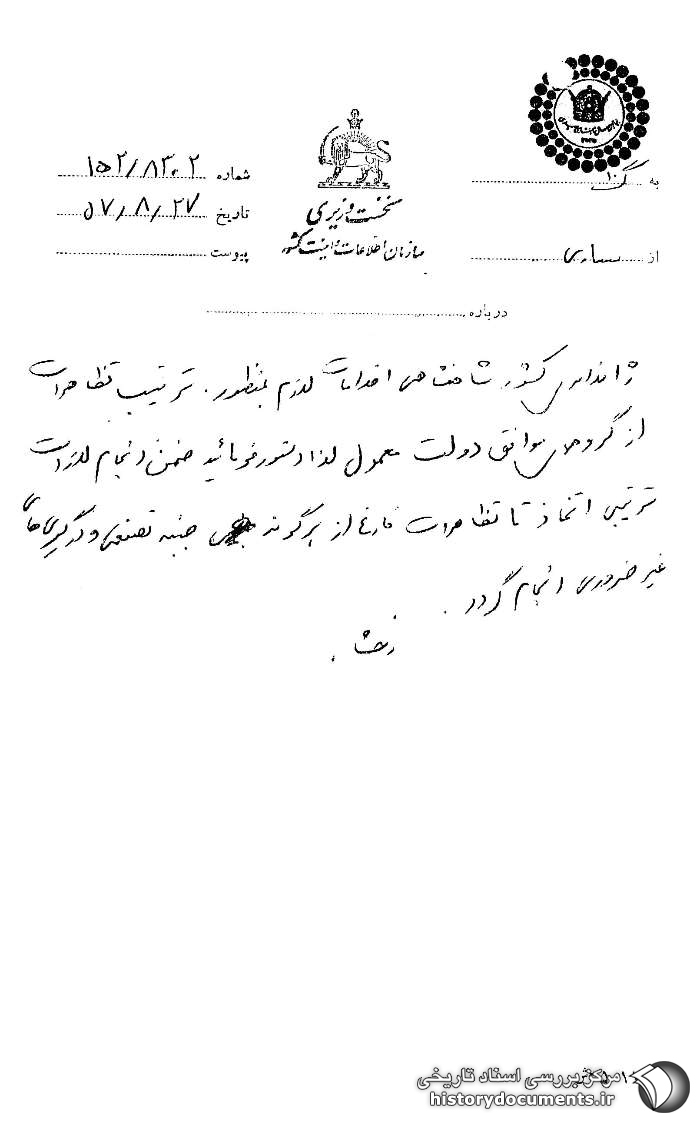 شماره ۱۵۲/۸۳۰۲
به
نخست وزیری
تاریخ ۵۷/۸/۲۷
سازمان اطلاعات و امنیت کشور
پیوست
از ساری
درباره
ژاندارمری کشور شاهنشاهی اقدامات لازم بمنظور ترتیب تظاهرات
از گروههای موافق دولت معمول لذا دستور فرمائید ضمن انجام
ترتیبی اتخاذ تا تظاهرات فارغ از هرگونه جنبه تصنعی و درگیری های
غیر ضروری انجام گردد .
مرکز بررسی اسناد تاریخی
historydocuments.ir